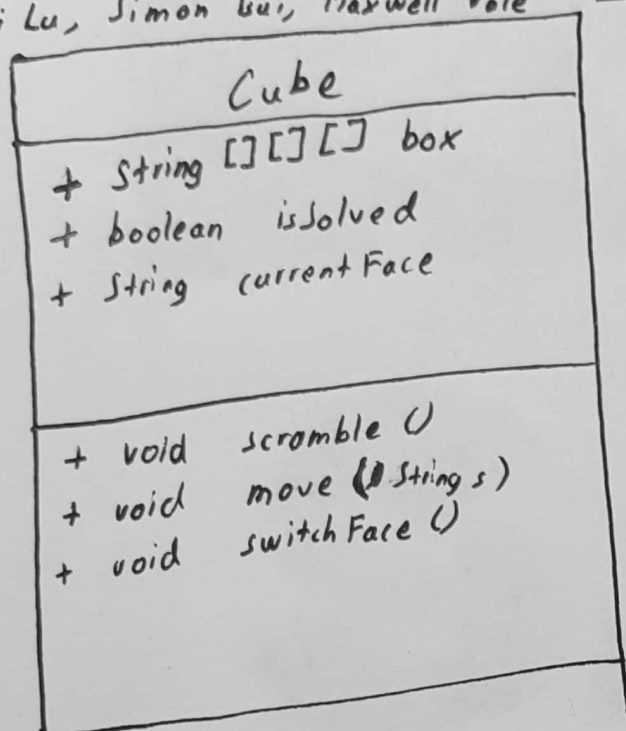 Lu, Simon Bui, Maxwell
Cube
+ String [][][] box
+ boolean isSolved
+ String currentFace
+ void scramble ()
+ void move (String s)
+ void switchFace ()